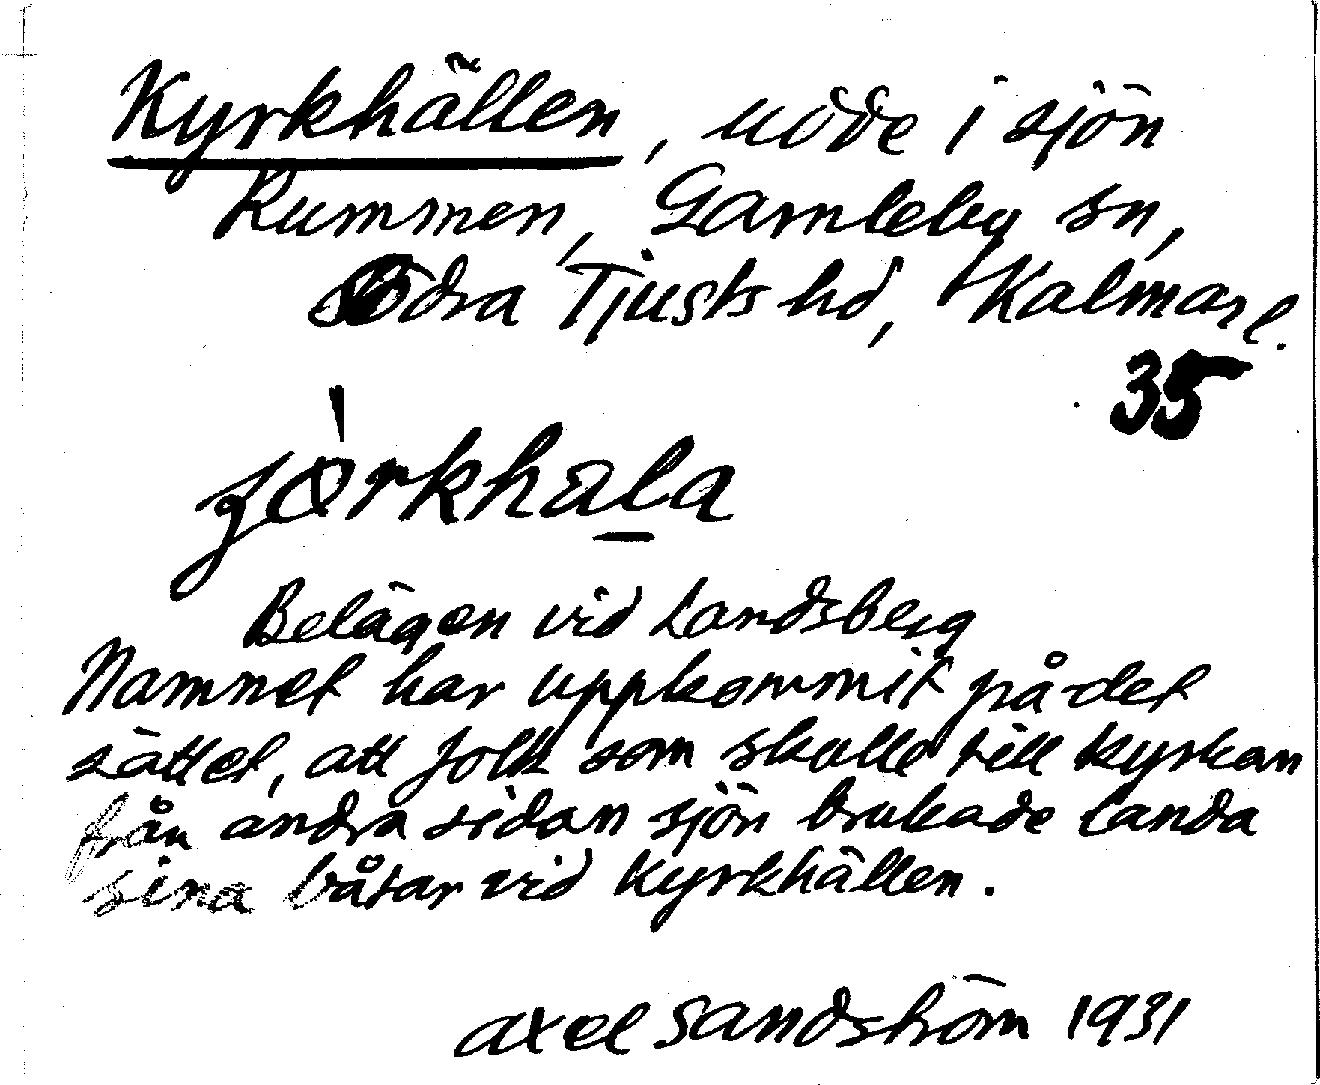 Kyrkhällen, udde i sjön
Rummen, Gamleby sn,
Södra Tjusts hd, Kalmar l.
35
Belägen vid Landsberg
Namnet har uppkommit på det
sättet, att folk som skulle till kyrkan
från andra sidan sjön brukade landa
sina båtar vid Kyrkhällen.
axel Sandström 1931